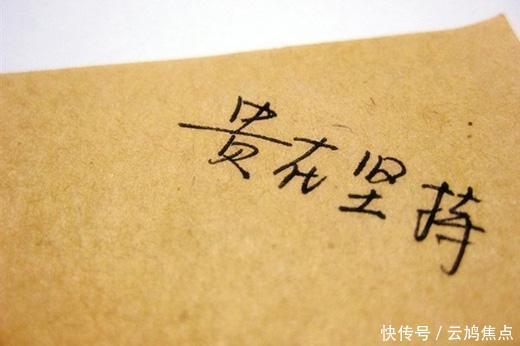 贵在坚持
快传号/云鸠焦点